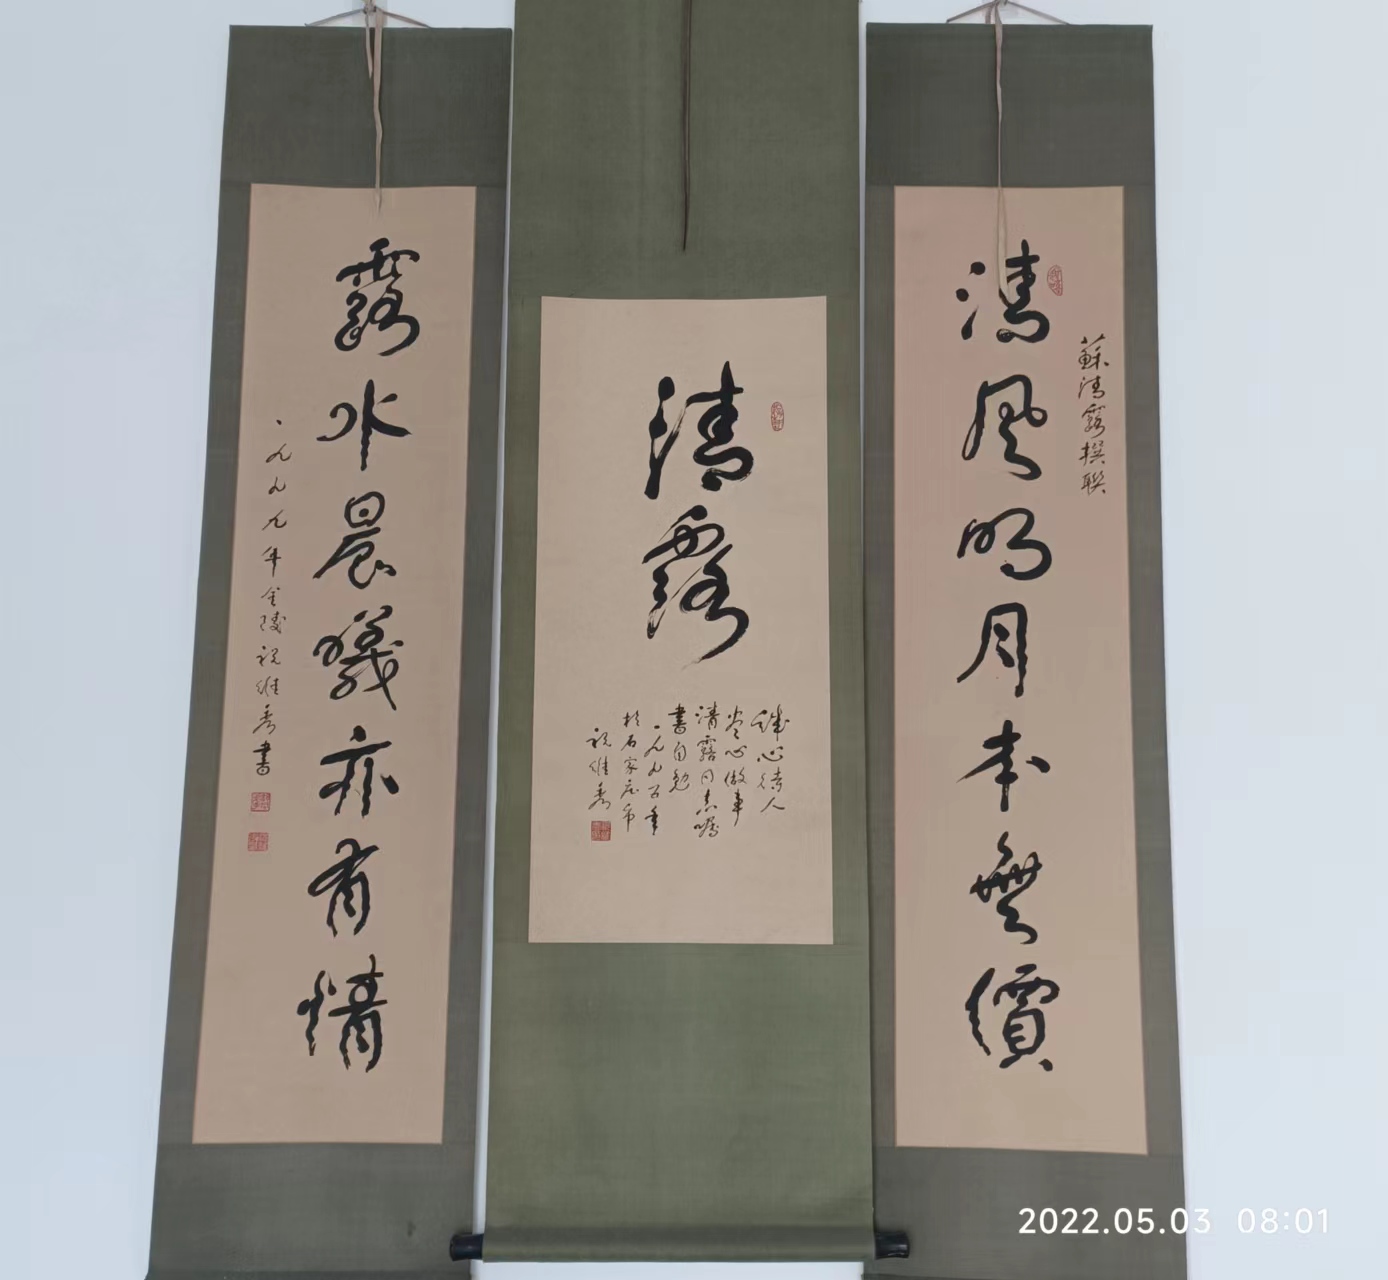 蘇清露撰聯
清風明月本無價
清露
誠心待人
盡心做事
清露同志囑
書自勉
一九九五年
於石家庄市
祝維秀
露水晨曦亦有情
一九九九年金陵祝維秀書
2022.05.03 08:01